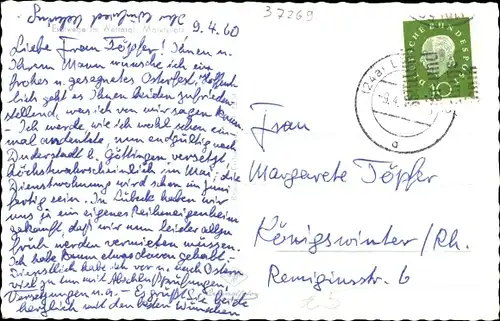 37269
9.4.60
Liebe Frau Töpfer! Ihnen u.
Ihrem Mann wünsche ich ein
frohes u. gesegnetes Osterfest. Hoffent-
lich geht es Ihnen beiden zufrieden-
stellend, was ich von mir sagen kann.
Ich werde, wie ich wohl schon ein-
mal andeutete, nun endgültig nach
Duderstadt b. Göttingen versetzt,
höchstwahrscheinlich im Mai; die
Dienstwohnung wird schon im Juni
fertig sein. In Lübeck haben wir
uns ja ein eigenes Reiheneigenheim
gekauft, daß wir nun leider allzu
früh werden vermieten müssen.
Ich habe kaum etwas davon gehabt.
Dienstlich habe ich vor u. nach Ostern
viel zu tun mit Abschlußprüfungen,
Versetzungen u.a. – Es grüßt Sie beide
herzlich mit den besten Wünschen
Ihr Winfried
DEUTSCHE BUNDESPOST
10
(24a) L
9.4.
a
Frau
Margarete Töpfer
Königswinter/Rh.
Remigiusstr. 6